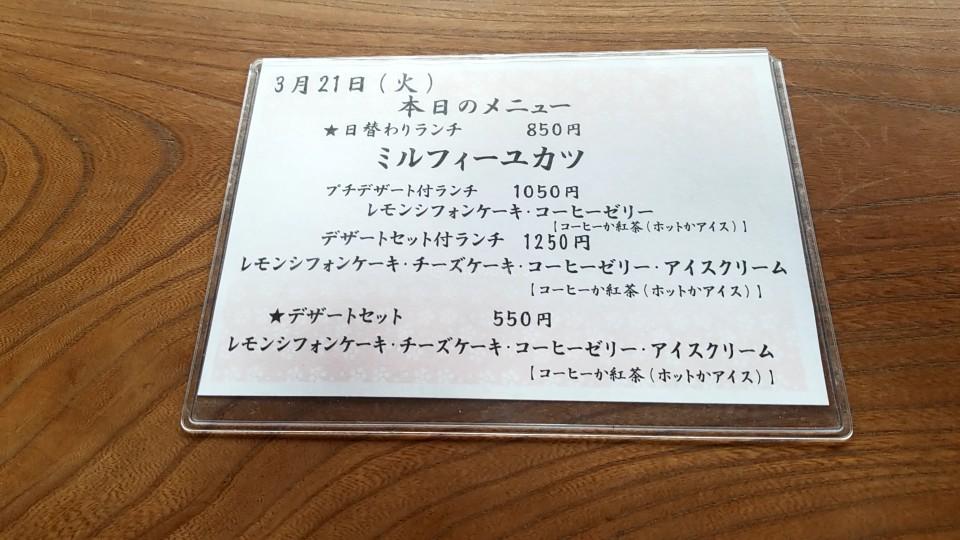 3月21日(火)
本日のメニュー
★日替わりランチ 850円
ミルフィーユカツ
プチデザート付ランチ 1050円
レモンシフォンケーキ・コーヒーゼリー
【コーヒーか紅茶(ホットかアイス)】
デザートセット付ランチ 1250円
レモンシフォンケーキ・チーズケーキ・コーヒーゼリー・アイスクリーム
【コーヒーか紅茶(ホットかアイス)】
★デザートセット 550円
レモンシフォンケーキ・チーズケーキ・コーヒーゼリー・アイスクリーム
【コーヒーか紅茶(ホットかアイス)】